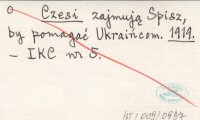 Czesi zajmują Spisz,
by pomagać Ukraińcom. 1919.
– IKC nr 5.